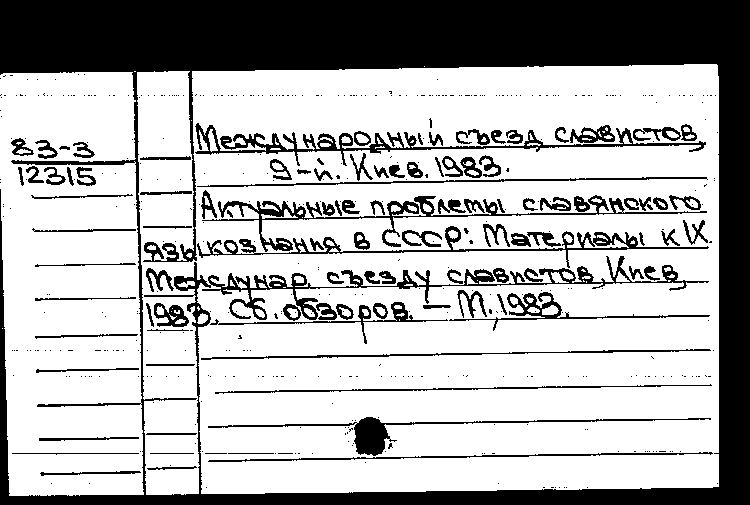 Международный съезд славистов,
83-3
9-й. Киев. 1983.
12315
Актуальные проблемы славянского
языкознания в СССР: Материалы к IX
Междунар. съезду славистов, Киев,
1983. Сб. обзоров. — М., 1983.